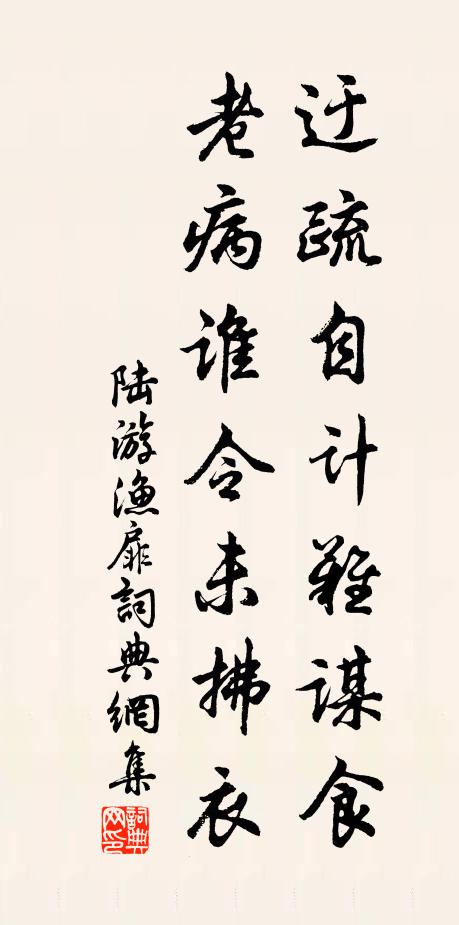 迂疏自计难谋食
老病谁令未拂衣
陆游渔扉詞典網集
詞典网印